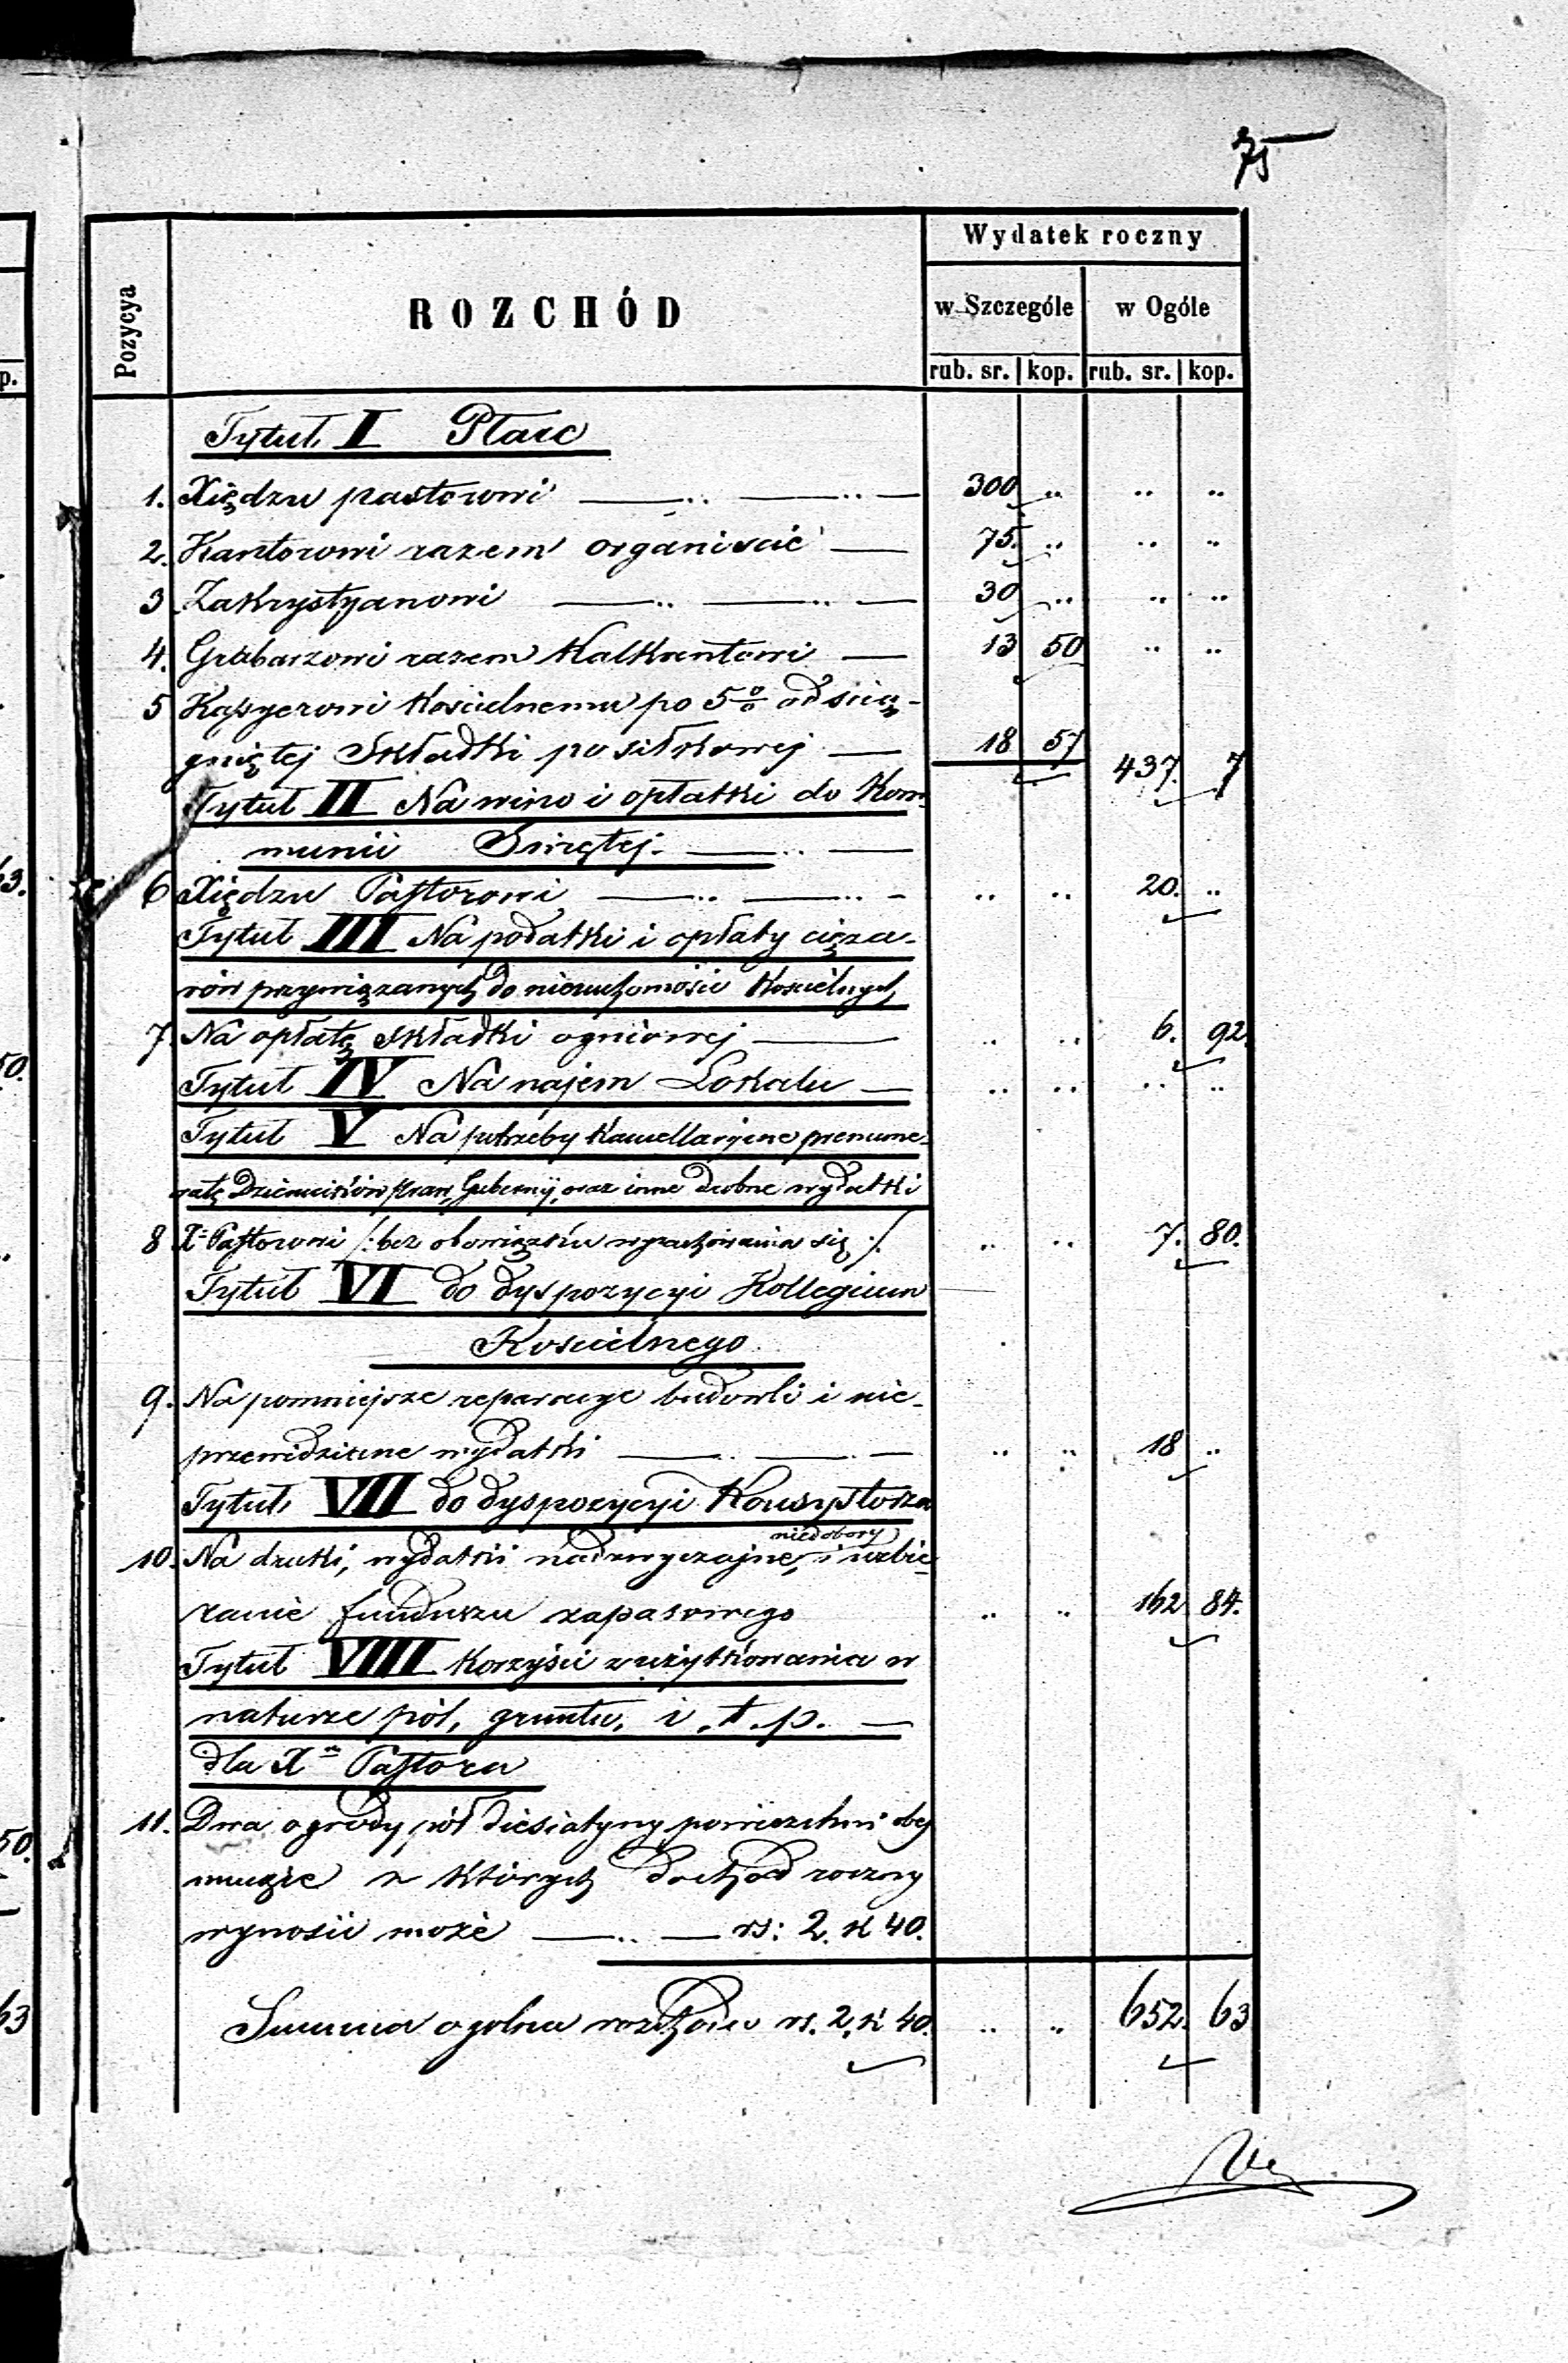 75
Wydatek roczny
Pozycya ROZCHÓD w Szczególe w Ogóle
rub. sr. kop. rub. sr. kop.
Tytuł I Płace
1. Xiędzu pastorowi 300 .. .. ..
2. Kantorowi razem organiście 75. .. .. ..
3 Zakrystyanowi 30 .. .. ..
4. Grabarzowi razem Kalkantowi 13 50 .. ..
5 Kassyerowi Kościelnemu po 5% od ścią-
gniętej Składki posiłkowej 18 57 437. 7
Tytuł II Na wino i opłatki do Kom-
munii Świętej.
6 Xiędzu Pastorowi .. .. 20. ..
Tytuł III Na podatki i opłaty cięża-
rów przywiązanych do nieruchomości Kościelnych
7. Na opłatę Składki ogniowej .. .. 6. 92.
Tytuł IV Na najem Lokalu .. .. .. ..
Tytuł V Na potrzeby Kancellaryjne prenume-
ratę Dzienników Gubernij, oraz inne drobne wydatki
8 X. Pastorowi /: bez obowiązku wyrachowania się :/ .. .. 7. 80.
Tytuł VI do dyspozycyi Kollegium
Kościelnego.
9. Na pomniejsze reparacye budowli i nie-
przewidziane wydatki .. .. 18 ..
Tytuł VII do dyspozycyi Konsystorza
niedobory
10. Na druki, wydatki nadzwyczajne, i uzbie-
ranie funduszu zapasowego .. .. 162 84.
Tytuł VIII Korzyści z użytkowania w
naturze pól, gruntu, i .t.p.
dla Xa Pastora
11. Dwa ogrody pół diesiatyny powierzchni obej
mujące z których dochód roczny
wynosić może rs: 2. k 40.
Summa ogólna rozchodu rs. 2. k 40. .. .. 652. 63